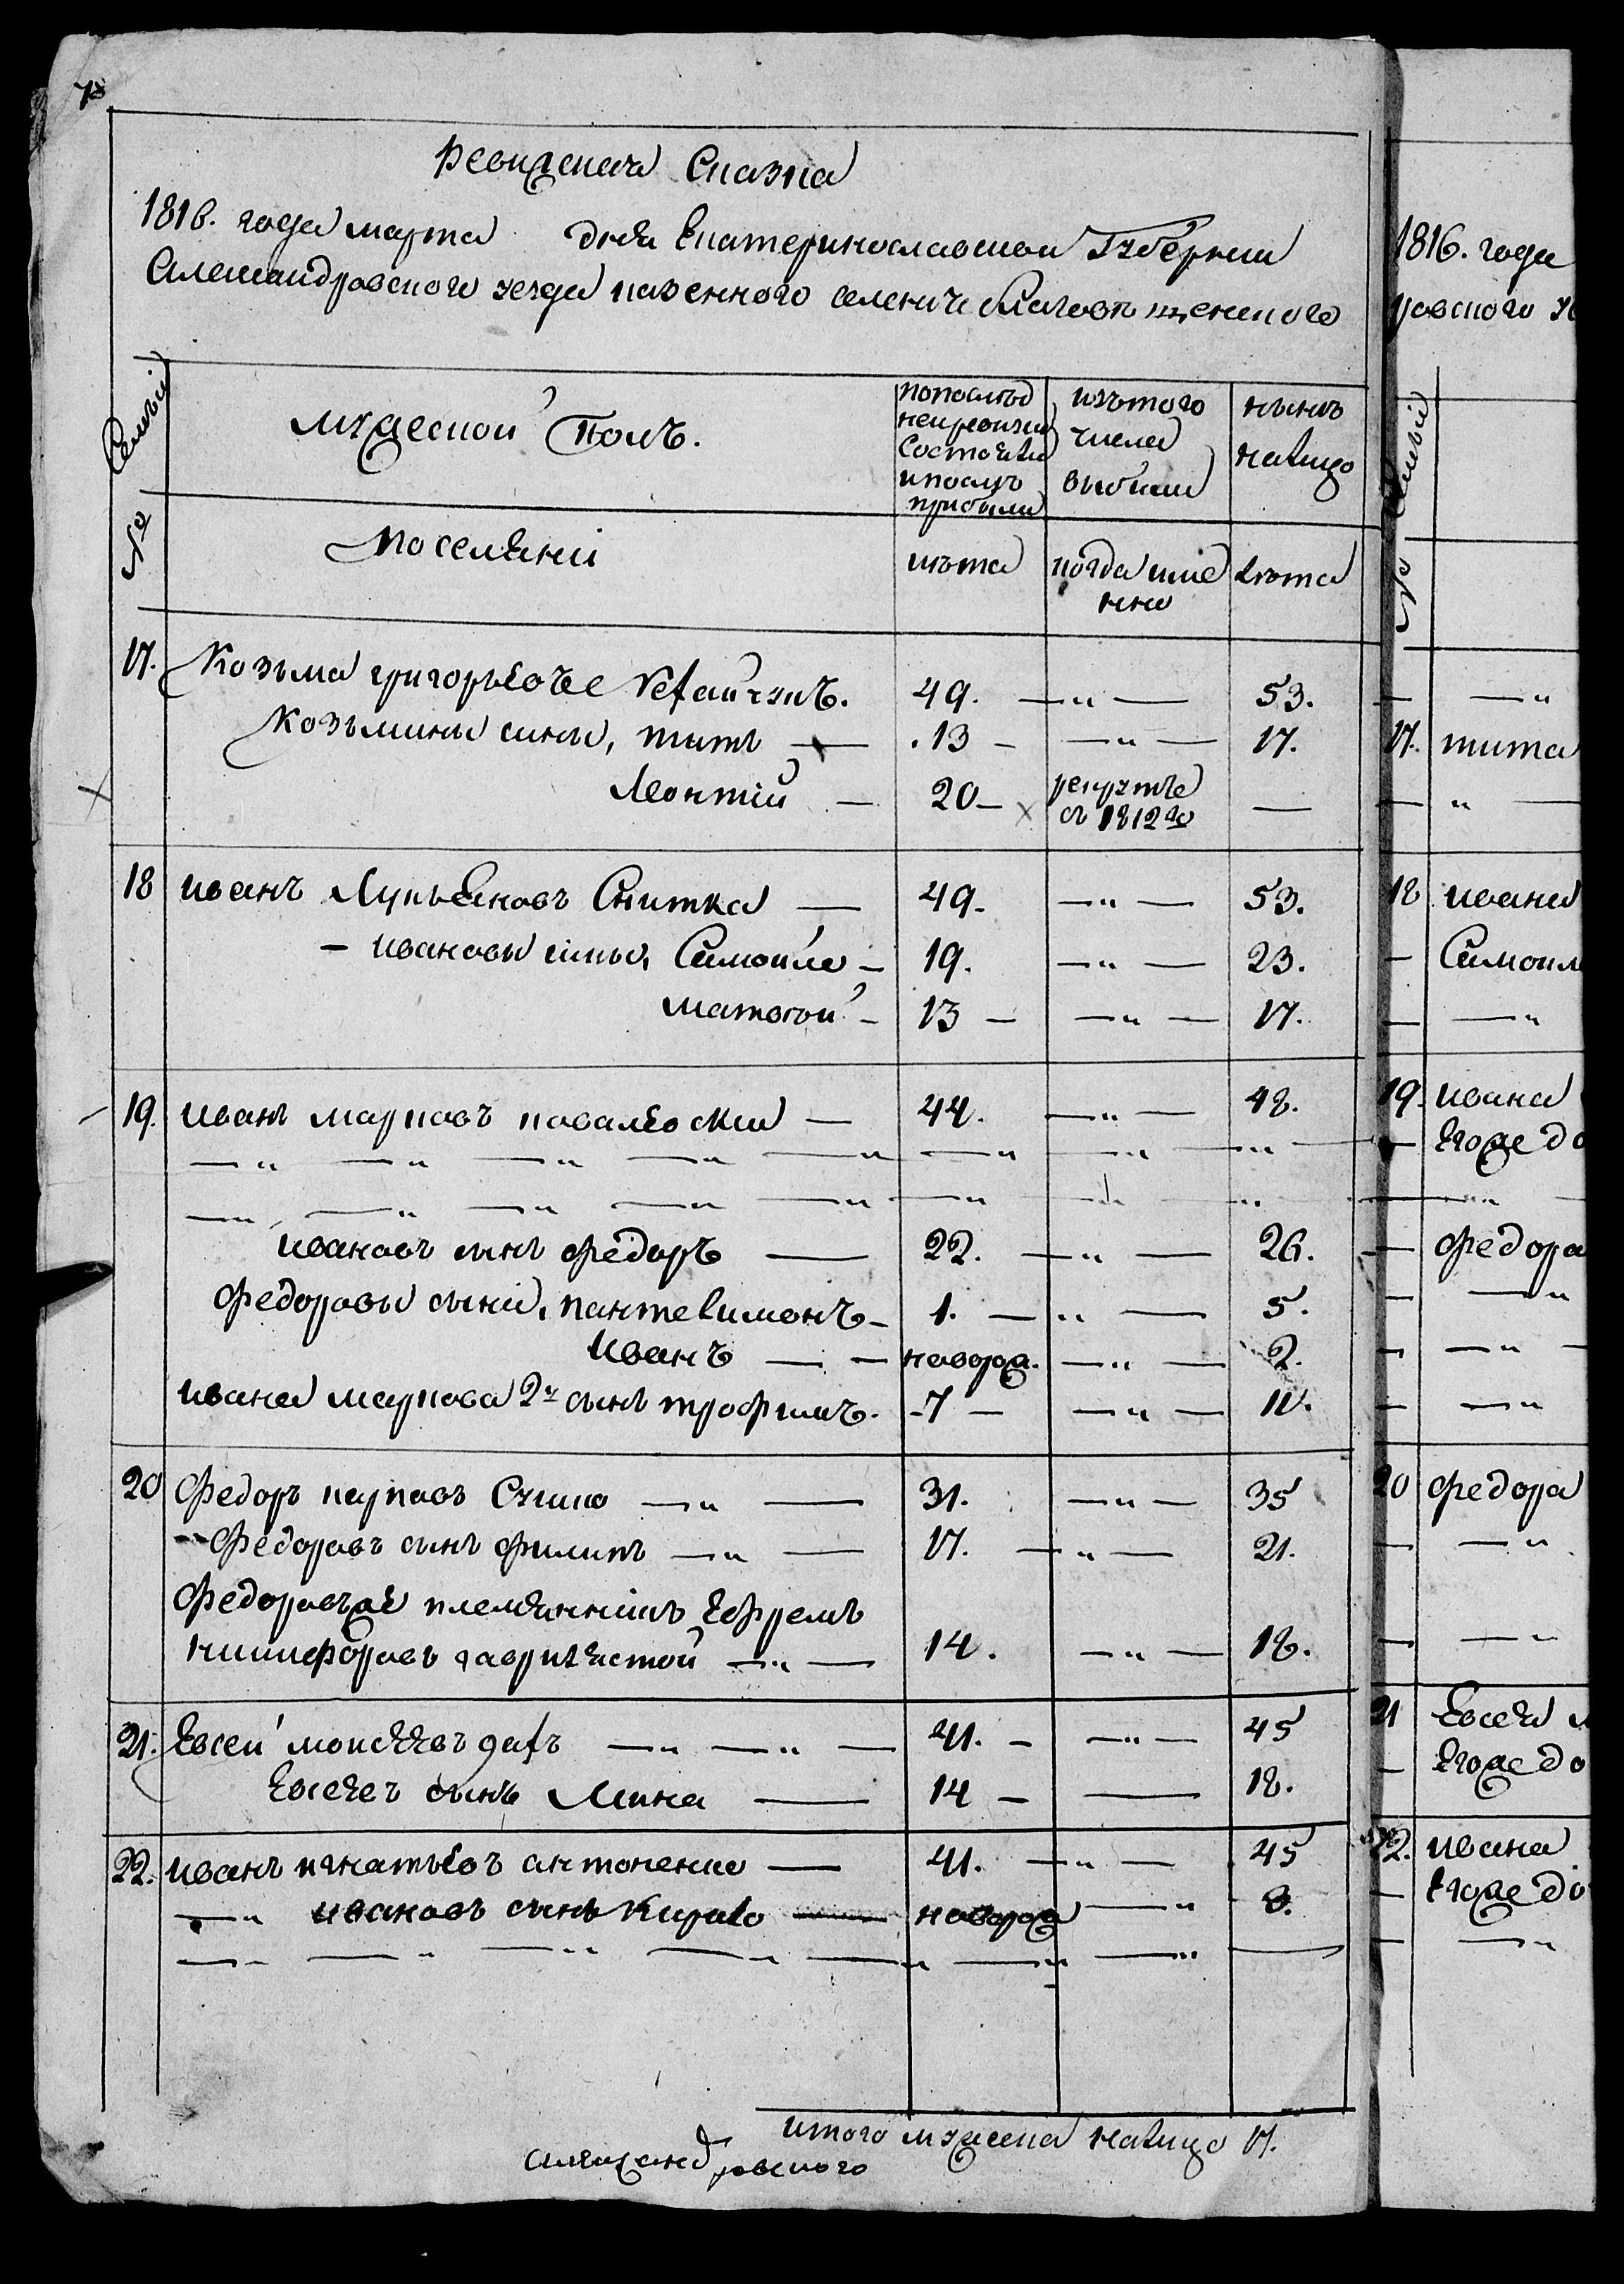 Ревизская Сказка
1816. года марта дня Екатеринославской Губернии
Александровского уезда казенного селения Благовещенского
Семьи
№
Мужеской Полъ.
по последней ревизии состояло и после прибыли
изъ того числа выбыли
ныне налицо
Поселяни
лета
когда именно
лета
17. Козьма григорьевъ 49. —„— 53.
Козьмины сины, титъ — 13 — —„— 17.
Леонтий — 20 — рекрутъ въ 1812 го —
18 иванъ Лукьяновъ Снитка — 49. —„— 53.
— ивановы сины, Самойло — 19. —„— 23.
матвей — 13 — —„— 17.
19. иванъ марковъ ковалевский — 44. —„— 48.
—„ —„ —„ —„ —„ —„ —„ —„
—„ —„ —„ —„ —„ —„ —„ —„
ивановъ синъ федоръ — 22. —„— 26.
федоровы сыни, пантелимонъ — 1. —„— 5.
иванъ — — новорож. —„— 2.
ивана маркова 2й сынъ трофимъ. -7 — —„— 11.
20 Федоръ карповъ —„— 31. —„— 35
Федоровъ сынъ филипъ —„— 17. —„— 21.
Федоровъ же племянникъ Ефремъ
никифоровъ —„— 14. —„— 18.
21. Евсей моисеевъ —„ —„ — 41. — —„— 45
Евсеевъ сынъ Мина — 14 — — 18.
22. иванъ игнатьевъ антоненко — 41. —„— 45
—„ ивановъ сынъ Кирило — новорож —„ 3.
—„ —„ —„ —„ —„ —„ —„ —
итого мужеска налицо 17.
александровского
1816. года
ровского у
Семьи
№
— —„
17. тита
— „ —
18 ивана
— Самойл
— —„
19. ивана
— Егоже до
— федора
— —„
— —„ —
— —„
20 федора
— —„
— —„
21 Евсея м
— Егоже до
22. ивана
— Егоже до
— —„